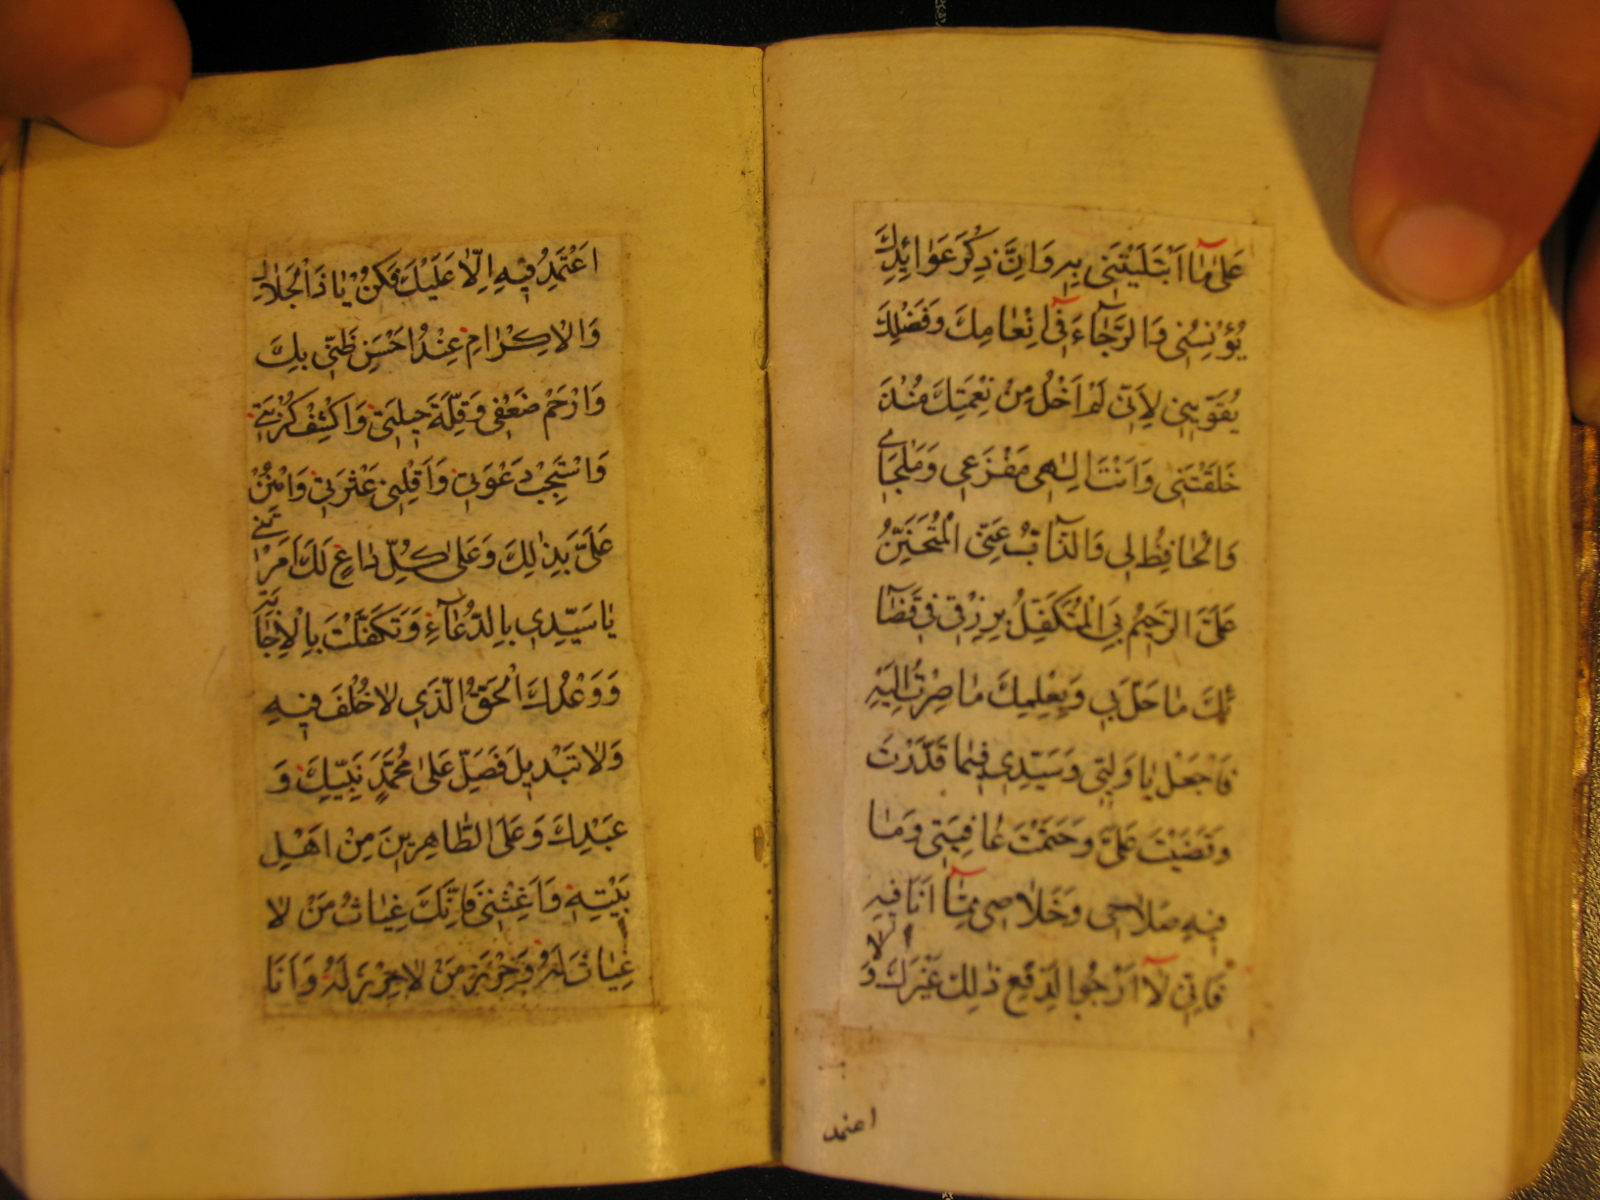 عَلٰى مٰا ابْتَلَيْتَنِي بِهِ وَاِنَّ ذِكْرَ عَوٰائِدِكَ
يُؤْنِسُنِي وَالرَّجٰٓاءَ فِٓي اِنْعٰامِكَ وَفَضْلِكَ
يُقَوِّينِي لِاَنِّي لَمْ اَخْلُ مِنْ نِعْمَتِكَ مُنْذُ
خَلَقْتَنِي وَاَنْتَ اِلٰهِي مَفْزَعِي وَمَلْجَاَيِ
وَالْحٰافِظُ لِي وَالذّٰآبُّ عَنِّي الْمُتَحَنِّنُ
عَلَيَّ الرَّحِيمُ بِيَ الْمُتَكَفِّلُ بِرِزْقِي فِي قَضٰٓا
ئِكَ مٰا حَلَّ بِي وَبِعِلْمِكَ مٰا صِرْتُ اِلَيْهِ
فَاجْعَلْ يٰا وَلِيِّي وَسَيِّدِي فِيمٰا قَدَّرْتَ
وَقَضَيْتَ عَلَيَّ وَحَتَمْتَ عٰافِيَتِي وَمٰا
فِيهِ صَلٰاحِي وَخَلٰاصِي مِمّٰٓا اَنَا فِيهِ
فَاِنِّي لٰٓا اَرْجُوا لِدَفْعِ ذٰلِكَ غَيْرَكَ وَلٰا
اعتمد
اَعْتَمِدُ فِيهِ اِلّٰا عَلَيْكَ فَكُنْ يٰا ذَا الْجَلٰالِ
وَالْاِكْرٰامِ عِنْدَ اَحْسَنِ ظَنِّي بِكَ
وَارْحَمْ ضَعْفِي وَقِلَّةَ حِيلَتِي وَاكْشِفْ كُرْبَتِي
وَاسْتَجِبْ دَعْوَتِي وَاَقِلْنِي عَثْرَتِي وَامْنُنْ
عَلَيَّ بِذٰلِكَ وَعَلٰى كُلِّ دٰاعٍ لَكَ اَمَرْتَنِي
يٰا سَيِّدِي بِالدُّعٰٓاءِ وَتَكَفَّلْتَ بِالْاِجٰابَةِ
وَوَعْدُكَ الْحَقُّ الَّذِي لٰا خُلْفَ فِيهِ
وَلٰا تَبْدِيلَ فَصَلِّ عَلٰى مُحَمَّدٍ نَبِيِّكَ وَ
عَبْدِكَ وَعَلَى الطّٰاهِرِينَ مِنْ اَهْلِ
بَيْتِهِ وَاَغِثْنِي فَاِنَّكَ غِيٰاثُ مَنْ لٰا
غِيٰاثَ لَهُ وَحِرْزُ مَنْ لٰا حِرْزَ لَهُ وَاَنَا